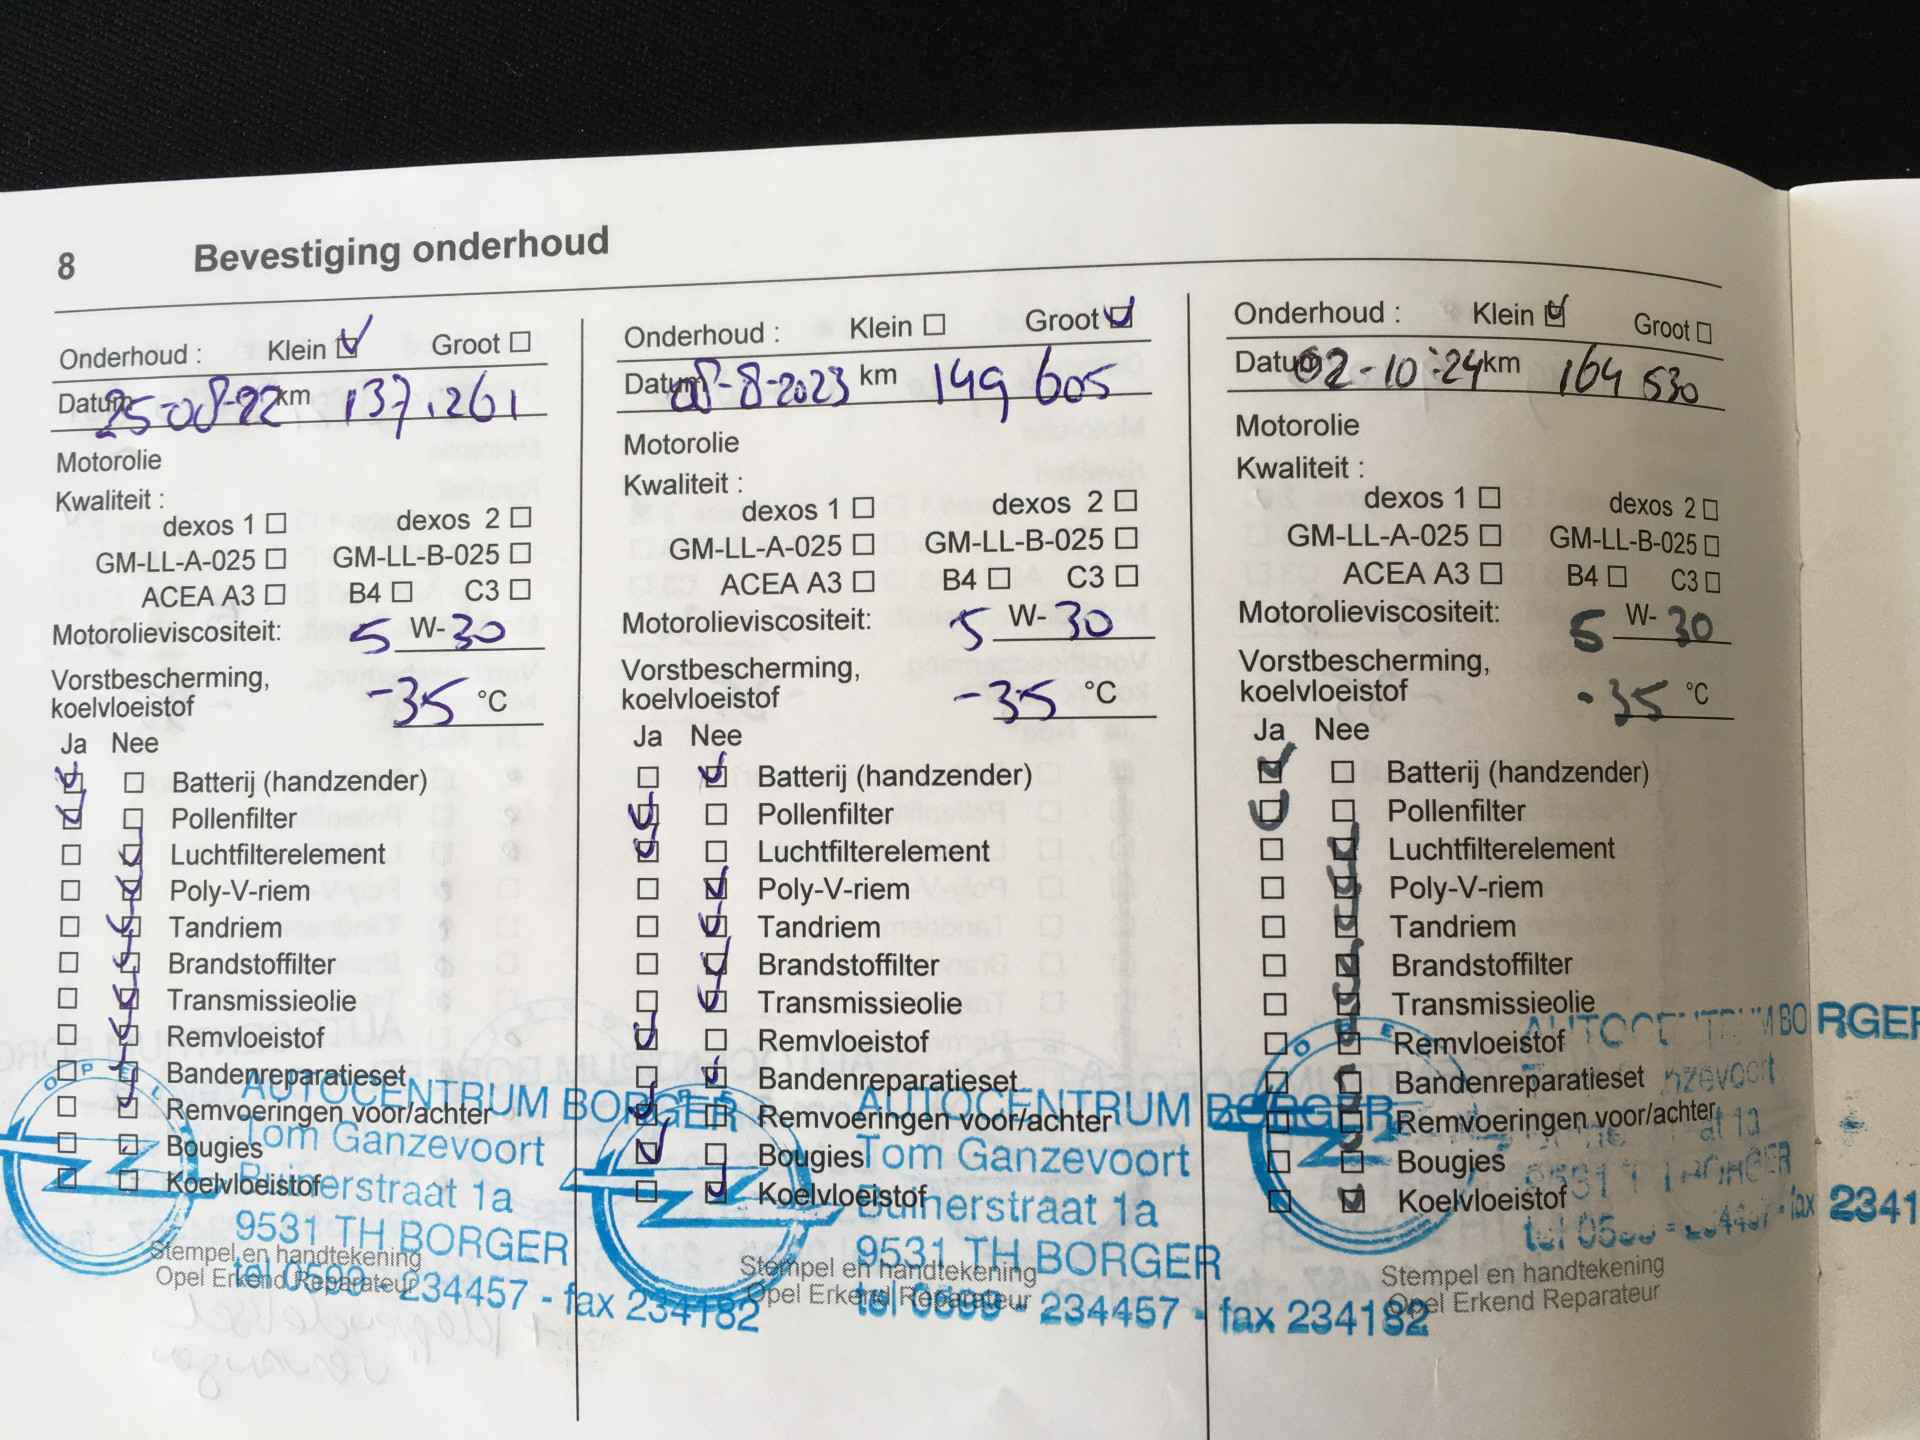 8 Bevestiging onderhoud
Onderhoud : Klein Groot
Datum 25-08-22 km 137.261
Motorolie
Kwaliteit :
dexos 1 dexos 2
GM-LL-A-025 GM-LL-B-025
ACEA A3 B4 C3
Motorolieviscositeit: 5 W-30
Vorstbescherming,
koelvloeistof -35 °C
Ja Nee
Batterij (handzender)
Pollenfilter
Luchtfilterelement
Poly-V-riem
Tandriem
Brandstoffilter
Transmissieolie
Remvloeistof
Bandenreparatieset
Remvoeringen voor/achter
Bougies
Koelvloeistof
OPEL
AUTOCENTRUM BORGER
Tom Ganzevoort
Buinerstraat 1a
9531 TH BORGER
tel 0599 - 234457 - fax 234182
Stempel en handtekening
Opel Erkend Reparateur
Onderhoud : Klein Groot
Datum 08-8-2023 km 149 605
Motorolie
Kwaliteit :
dexos 1 dexos 2
GM-LL-A-025 GM-LL-B-025
ACEA A3 B4 C3
Motorolieviscositeit: 5 W-30
Vorstbescherming,
koelvloeistof -35 °C
Ja Nee
Batterij (handzender)
Pollenfilter
Luchtfilterelement
Poly-V-riem
Tandriem
Brandstoffilter
Transmissieolie
Remvloeistof
Bandenreparatieset
Remvoeringen voor/achter
Bougies
Koelvloeistof
AUTOCENTRUM BORGER
Tom Ganzevoort
Buinerstraat 1a
9531 TH BORGER
tel 0599 - 234457 - fax 234182
Stempel en handtekening
Opel Erkend Reparateur
Onderhoud : Klein Groot
Datum 02-10-24 km 164 530
Motorolie
Kwaliteit :
dexos 1 dexos 2
GM-LL-A-025 GM-LL-B-025
ACEA A3 B4 C3
Motorolieviscositeit: 5 W-30
Vorstbescherming,
koelvloeistof -35 °C
Ja Nee
Batterij (handzender)
Pollenfilter
Luchtfilterelement
Poly-V-riem
Tandriem
Brandstoffilter
Transmissieolie
Remvloeistof
Bandenreparatieset
Remvoeringen voor/achter
Bougies
Koelvloeistof
OPEL
BORGER
BORGER
fax 2341
Stempel en handtekening
Opel Erkend Reparateur